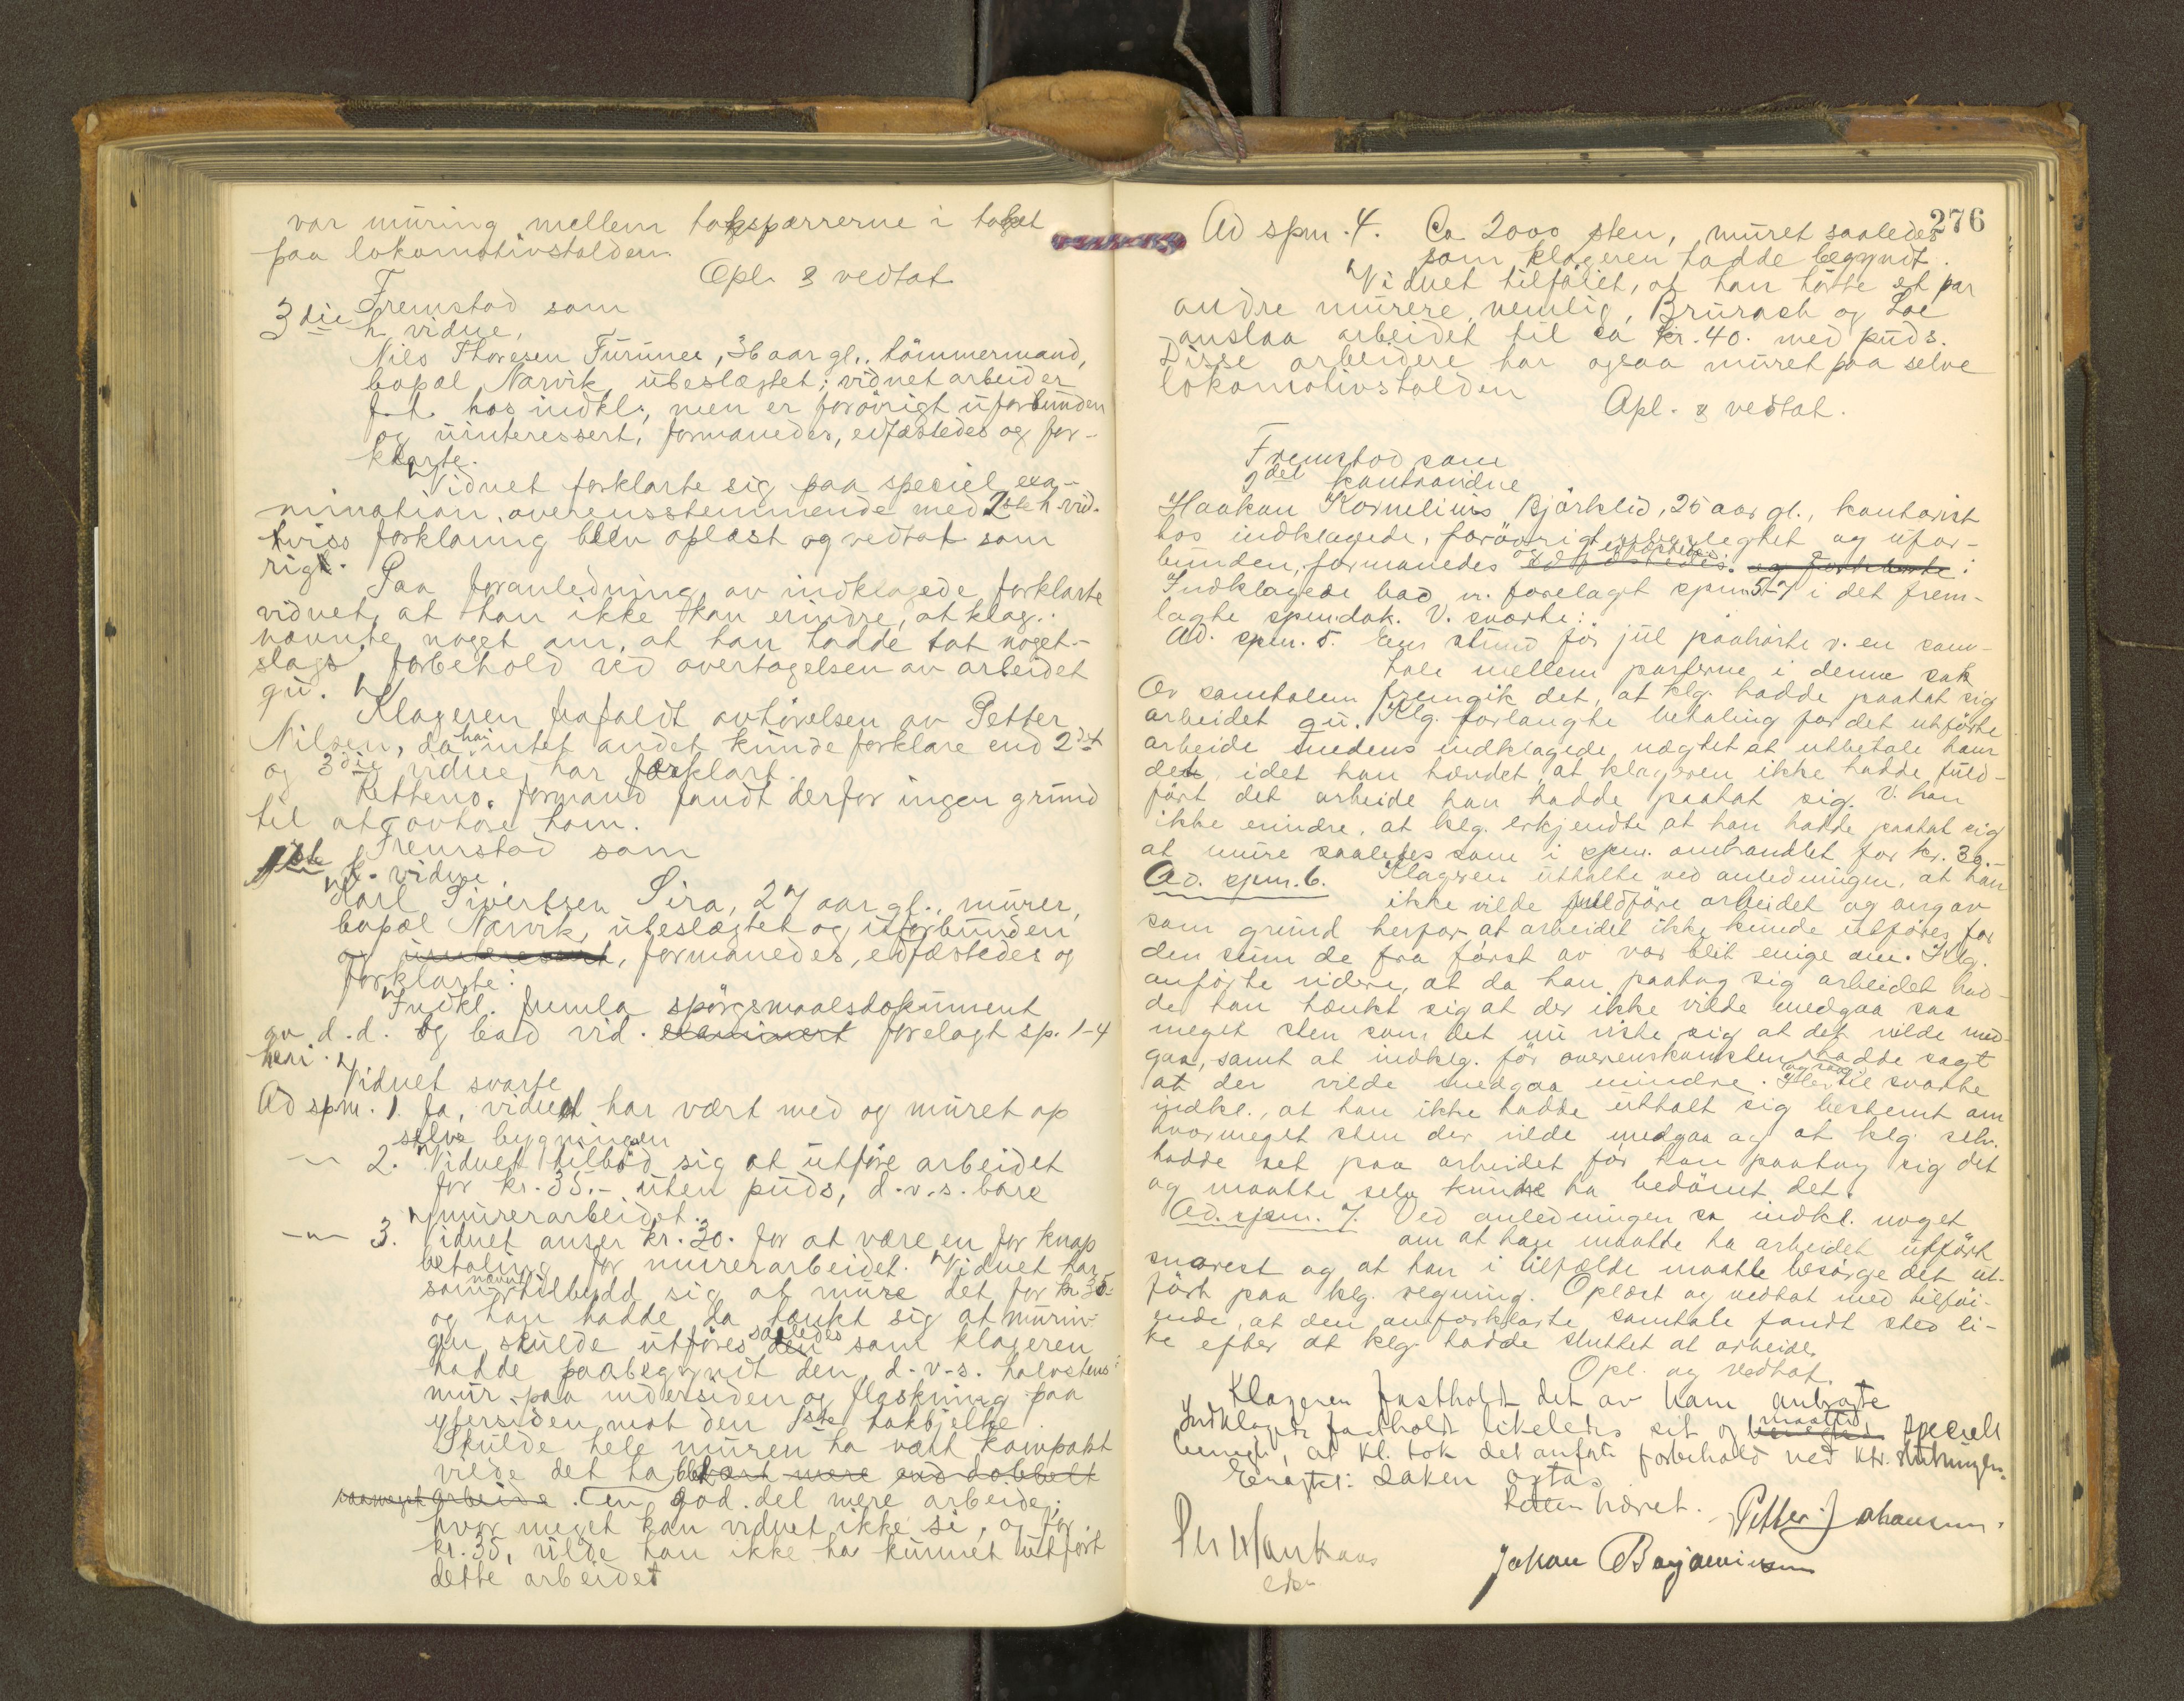 var muring mellem taksparrerne i taket
paa lokomotivstalden.
Opl. & vedtat
Fremstod som
3die h. vidne,
Nils Thoresen Furunes, 36 aar gl., tömmermand,
bopæl Narvik, ubeslægtet; vidnet arbeider
f. t. hos indkl., men er forövrigt uforbunden
og uinteressert, formanedes, edfæstedes og for-
klarte.
Vidnet forklarte sig paa speciel exa-
mination, overensstemmende med 2det h. vid.
hviss forklaring blev oplæst og vedtat som
rigt.
Paa foranledning av indklagede forklarte
vidnet, at han ikke kan erindre, at klag.
nævnte noget om, at han hadde tat noget-
slags forbehold ved overtagelsen av arbeidet
qu.
Klageren frafaldt avhörelsen av Petter
Nilsen, da han intet andet kunde forklare end 2det
og 3die vidne har forklart.
Rettens formand fandt derfor ingen grund
til at avhöre ham.
Fremstod som
1ste k. vidne
Karl Sivertsen Sira, 27 aar gl., murer,
bopæl Narvik, ubeslægtet og uforbunden
og uinteressert, formanedes, edfæstedes og
forklarte:
Indkl. fremla spörgsmaalsdokument
av d.d. og bad vid. examinert forelagt sp. 1-4
heri.
Vidnet svarte
Ad spm. 1. Ja, vidnet har vært med og muret op
selve bygningen
-"- 2. Vidnet tilböd sig at utföre arbeidet
for kr. 35.- uten puds, d.v.s. bare
murerarbeidet.
-"- 3. Vidnet anser kr. 30. for at være en for knap
betaling for murerarbeidet. Vidnet har
som nævnt tilbydd sig at mure det for kr. 35.-
og han hadde da tænkt sig at murin-
gen skulde utföres saaledes den som klageren
hadde paabegyndt den, d.v.s. halvstens
mur paa indersiden og flaskning paa
ytersiden mot den 1ste takbjelke.
Skulde hele muren ha vært kompakt
vilde det ha blit vært mere end dobbelt
saameget arbeide. en god del mere arbeide;
hvor meget kan vidnet ikke si, og for
kr. 35, vilde han ikke ha kunnet utfört
dette arbeidet
276
Ad spm. 4. Ca 2000 sten, muret saaledes
som klageren hadde begyndt.
Vidnet tilföiet, at han hörte et par
andre murere, nemlig, Brurach og Loe
anslaa arbeidet til ca kr. 40. med puds.
Disse arbeidere har ogsaa muret paa selve
lokomotivstalden
Opl. & vedtat.
Fremstod som
2det kontravidne
Haakon Kornelius Bjørklid, 25 aar gl., kontorist
hos indklagede, forövrigt ubeslegtet og ufor-
bunden, formanedes og edfæstedes. og forklarte:
Indklagede bad v. forelagt spm 5-7 i det frem-
lagte spm.dok. V. svarte:
Ad. spm. 5. En stund før jul paahörte v. en sam-
tale mellem parterne i denne sak
Av samtalen fremgik det, at klg. hadde paatat sig
arbeidet qu. Klg. forlangte betaling for det utförte
arbeide medens indklagede nægtet at utbetale ham
det, idet han hævdet, at klageren ikke hadde fuld-
fört det arbeide han hadde paatat sig. V. kan
ikke erindre, at klg. erkjendte at han hadde paatat sig
at mure saaledes som i spm. omhandlet for kr. 30.-
Ad. spm. 6. Klageren uttalte ved anledningen, at han
ikke vilde fuldföre arbeidet og angav
som grund herfor at arbeidet ikke kunde utføres for
den sum de fra först av var blit enige om. Klg.
anförte videre, at da han paatog sig arbeidet had-
de han tænkt sig at der ikke vilde medgaa saa
meget sten som det nu viste sig at det vilde med-
gaa, samt at indklg. för overenskomsten hadde sagt
at der vilde medgaa mindre. Hertil svarte
indkl., at han ikke hadde uttalt sig bestemt om
hvormeget sten der vilde medgaa og at klg. selv
hadde set paa arbeidet för han paatog sig det
og maatte selv kunne ha bedömt det.
Ad. spm. 7. Ved anledningen sa indkl. noget
om at han maatte ha arbeidet utfört
snarest og at han i tilfælde maatte besörge det ut-
fört paa klg. regning. Oplæst og vedtat med tilföi-
ende, at den omforklarte samtale fandt sted li-
ke efter at klg. hadde sluttet at arbeide.
Opl. og vedtat.
Klageren fastholdt det av ham anbragte
Indklagede fastholdt likeledes sit og benegted specielt
benegt, at kl. tok det anførte forbehold ved ktr. slutningen.
Eragtet: Saken optas
Retten hævet. Petter Johansen.
Per Hankaas
Johan Benjaminsen